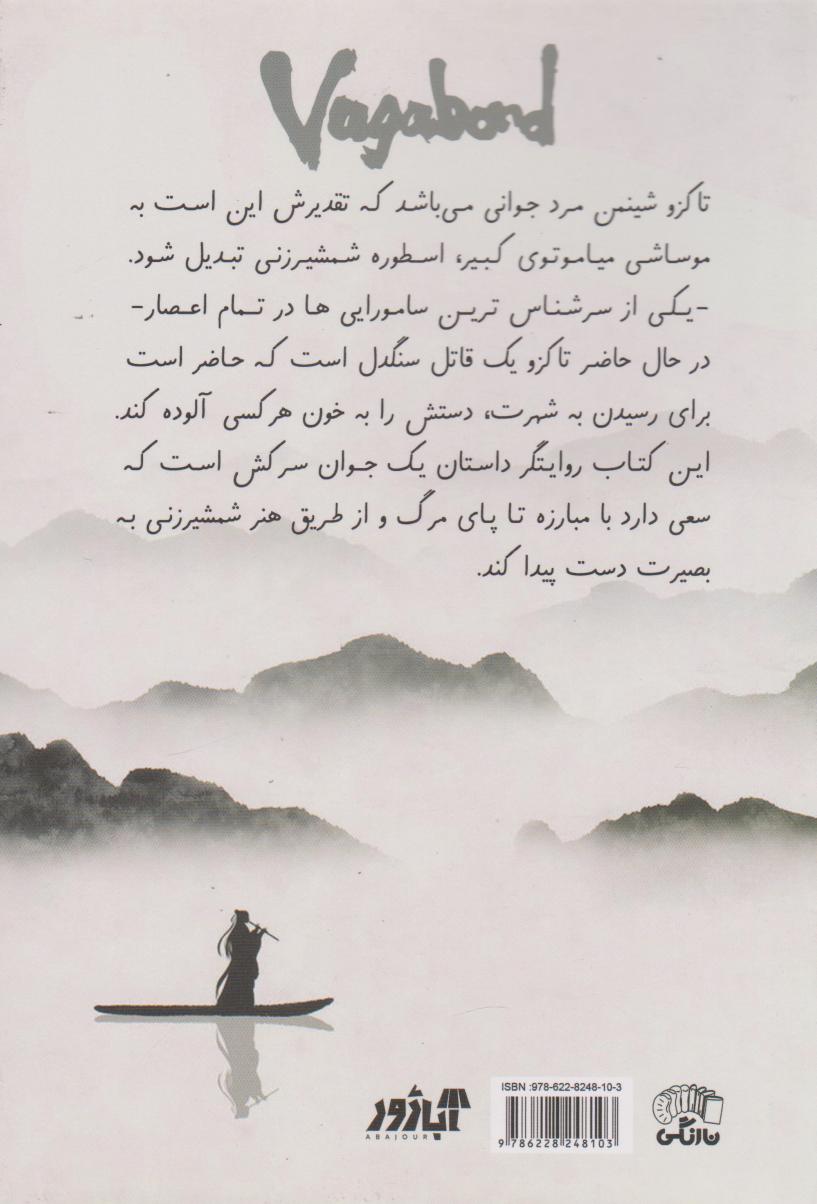 Vagabond
تاکزو شینمن مرد جوانی می‌باشد که تقدیرش این است به
موساشی میاموتوی کبیر، اسطوره شمشیرزنی تبدیل شود.
-یکی از سرشناس ترین سامورایی ها در تمام اعصار-
در حال حاضر تاکزو یک قاتل سنگدل است که حاضر است
برای رسیدن به شهرت، دستش را به خون هرکسی آلوده کند.
این کتاب روایتگر داستان یک جوان سرکش است که
سعی دارد با مبارزه تا پای مرگ و از طریق هنر شمشیرزنی به
بصیرت دست پیدا کند.
نارنگی
ISBN :978-622-8248-10-3
9 786228 248103
آباژور
ABAJOUR